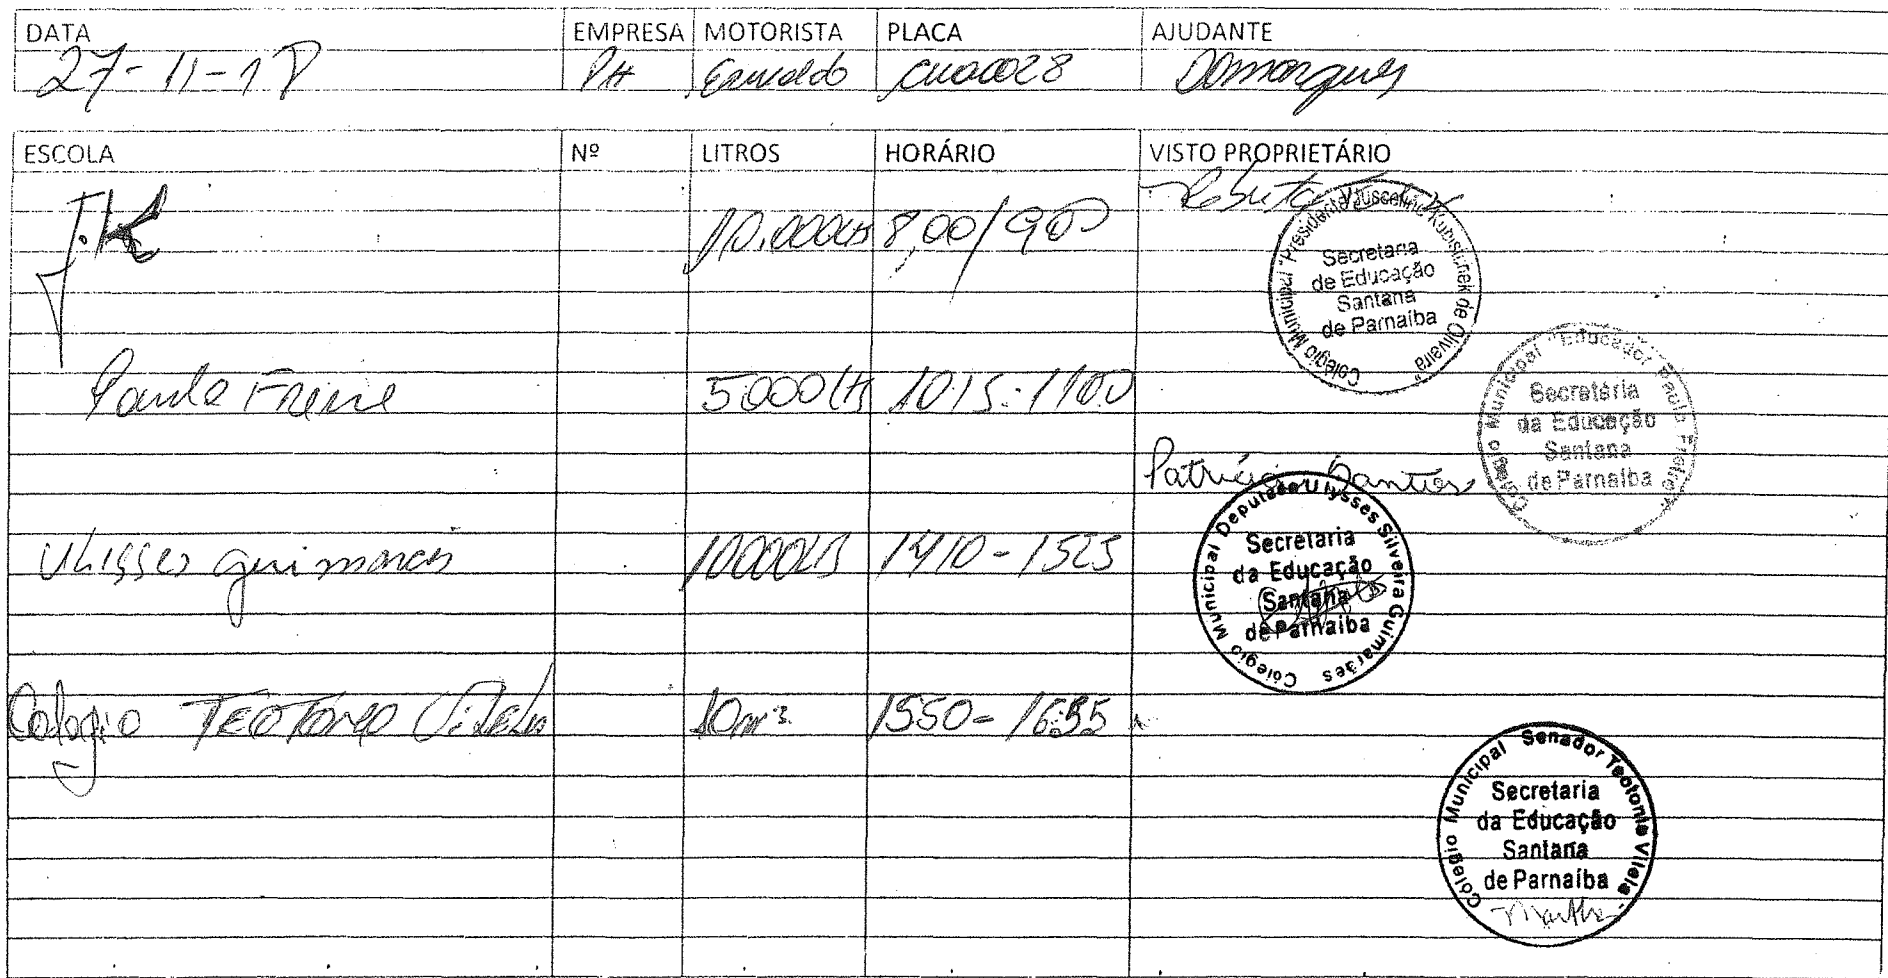 DATA EMPRESA MOTORISTA PLACA AJUDANTE
27-11-17 PH CUA0028 Domarques
ESCOLA Nº LITROS HORÁRIO VISTO PROPRIETÁRIO
J.K 10.000Lts 8,00/900
Colégio Municipal "Presidente Juscelino Kubistchek de Oliveira"
Secretaria
de Educação
Santana
de Parnaíba
Paulo Freire 5000Lts 1015-1100
Colégio Municipal "Educador Paulo Freire"
Secretaria
da Educação
Santana
de Parnaíba
Patrícia Santos
Ulisses guimaraes 10000Lts 1410-1525
Colégio Municipal Deputado Ulysses Silveira Guimarães
Secretaria
da Educação
Santana
de Parnaíba
Colagio TEOTONIO Vilela 10m³ 1550-1635
Colégio Municipal Senador Teotonio Vilela
Secretaria
da Educação
Santana
de Parnaíba
Martha